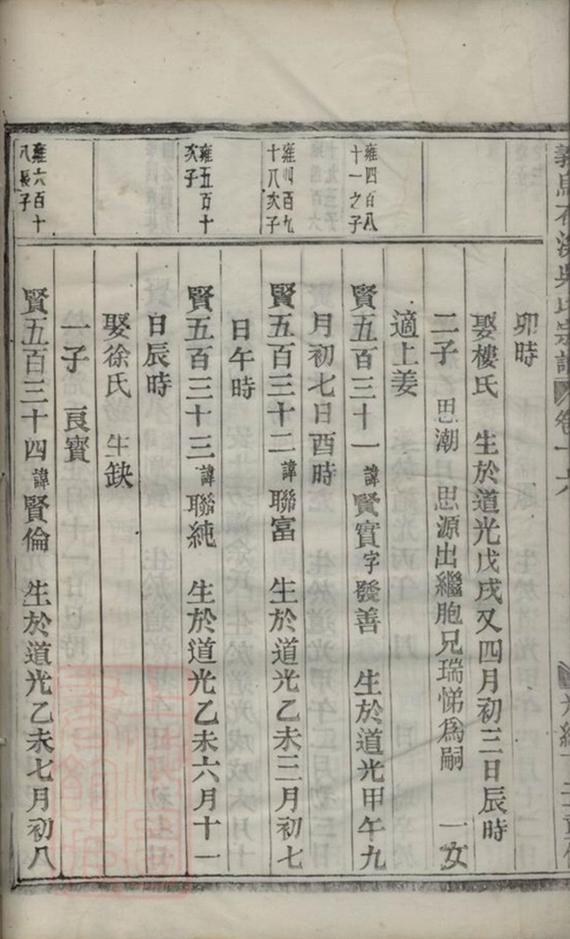 義烏石溪吳氏宗譜 卷十六
卯時
娶樓氏 生於道光戊戌又四月初三日辰時
二子 思潮 思源出繼胞兄瑞悌為嗣 一女
適上姜
雍四百八
十一之子
賢五百三十一諱賢實字發善 生於道光甲午九
月初七日酉時
雍四百九
十八次子
賢五百三十二諱聯富 生於道光乙未三月初七
日午時
雍五百十
次子
賢五百三十三諱聯純 生於道光乙未六月十一
日辰時
娶徐氏 生缺
一子 良寶
雍六百十
八長子
賢五百三十四諱賢倫 生於道光乙未七月初八